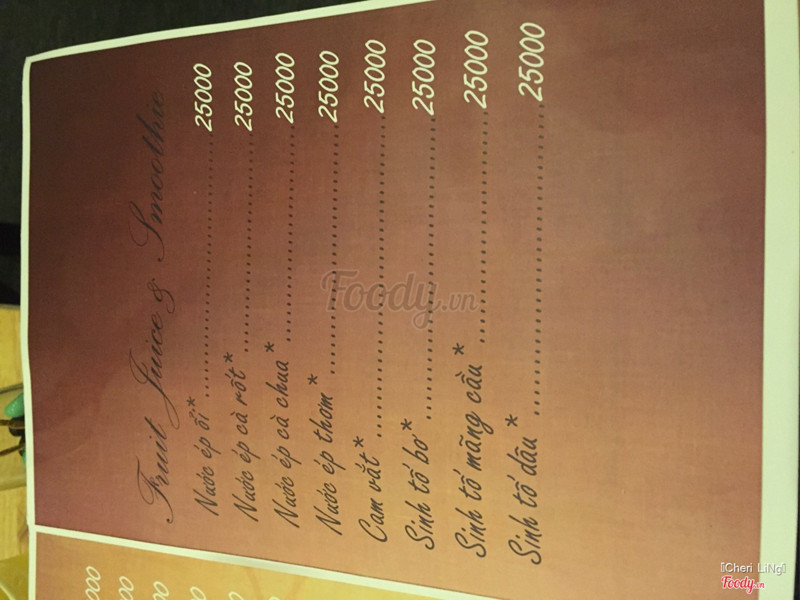 Fruit Juice & Smoothie
Nước ép ổi*........................25000
Nước ép cà rốt*........................25000
Nước ép cà chua*........................25000
Nước ép thơm*........................25000
Cam vắt*........................25000
Sinh tố bơ*........................25000
Sinh tố mãng cầu*........................25000
Sinh tố dâu*........................25000
Foody.vn
[Cheri LiNg]
Foody.vn